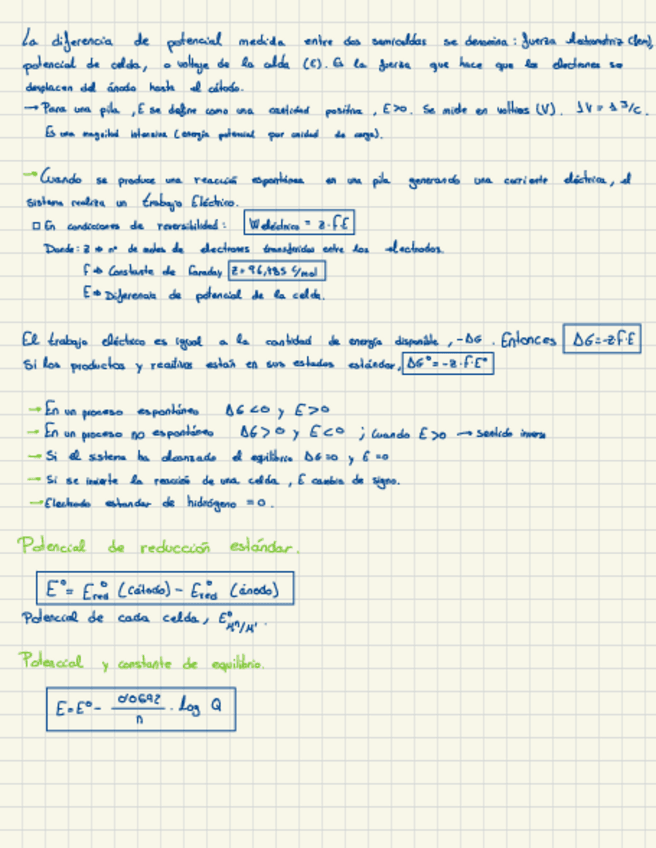 La diferencia de potencial medida entre dos semiceldas se denomina: fuerza electromotriz (fem),
potencial de celda, o voltaje de la celda (E). Es la fuerza que hace que los electrones se
desplacen del ánodo hasta el cátodo.
→ Para una pila, E se define como una cantidad positiva, E>0. Se mide en voltios (V). 1V = 1 J/C.
Es una magnitud intensiva (energía potencial por unidad de carga).
→ Cuando se produce una reacción espontánea en una pila generando una corriente eléctrica, el
sistema realiza un trabajo Eléctrico.
□ En condiciones de reversibilidad: Weléctrico = z·F·E
Donde: z → nº de moles de electrones transferidos entre los electrodos.
F → Constante de Faraday z=96,485 C/mol
E → Diferencia de potencial de la celda.
El trabajo eléctrico es igual a la cantidad de energía disponible, -ΔG. Entonces ΔG=-zF·E
Si los productos y reactivos están en sus estados estándar, ΔG°=-z·F·E°
→ En un proceso espontáneo ΔG<0 y E>0
→ En un proceso no espontáneo ΔG>0 y E<0 ; Cuando E>0 → sentido inverso
→ Si el sistema ha alcanzado el equilibrio ΔG=0 y E=0
→ Si se invierte la reacción de una celda, E cambia de signo.
→ Electrodo estandar de hidrógeno = 0.
Potencial de reducción estándar.
E°= E°red (cátodo) - E°red (ánodo)
Potencial de cada celda,
Potencial y constante de equilibrio.
E=E°- 0'0592/n · log Q